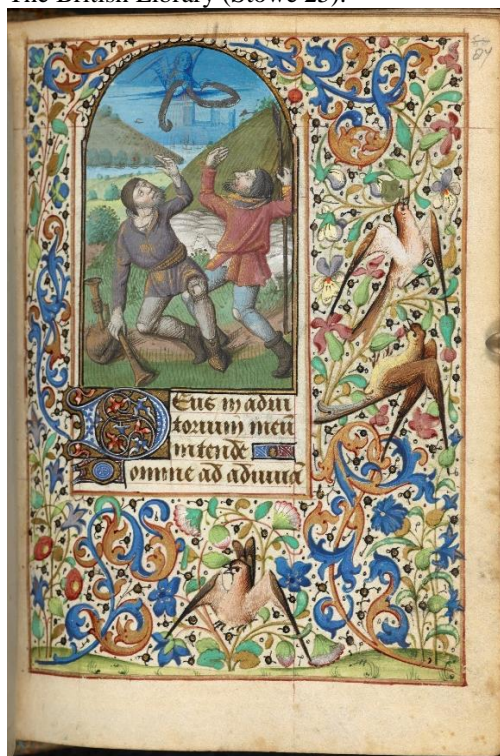 The British Library (Stowe 25).
84
DEus in adiu
torium meū
intende
Domine ad adiuuā